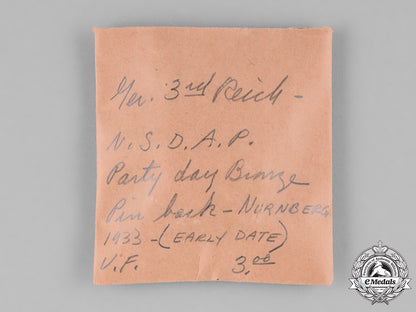 Ger. 3rd Reich -
N.S.D.A.P.
Party day Bronze
Pin back - NURNBERG
1933 - (EARLY DATE)
V.F. 3.00
eMedals